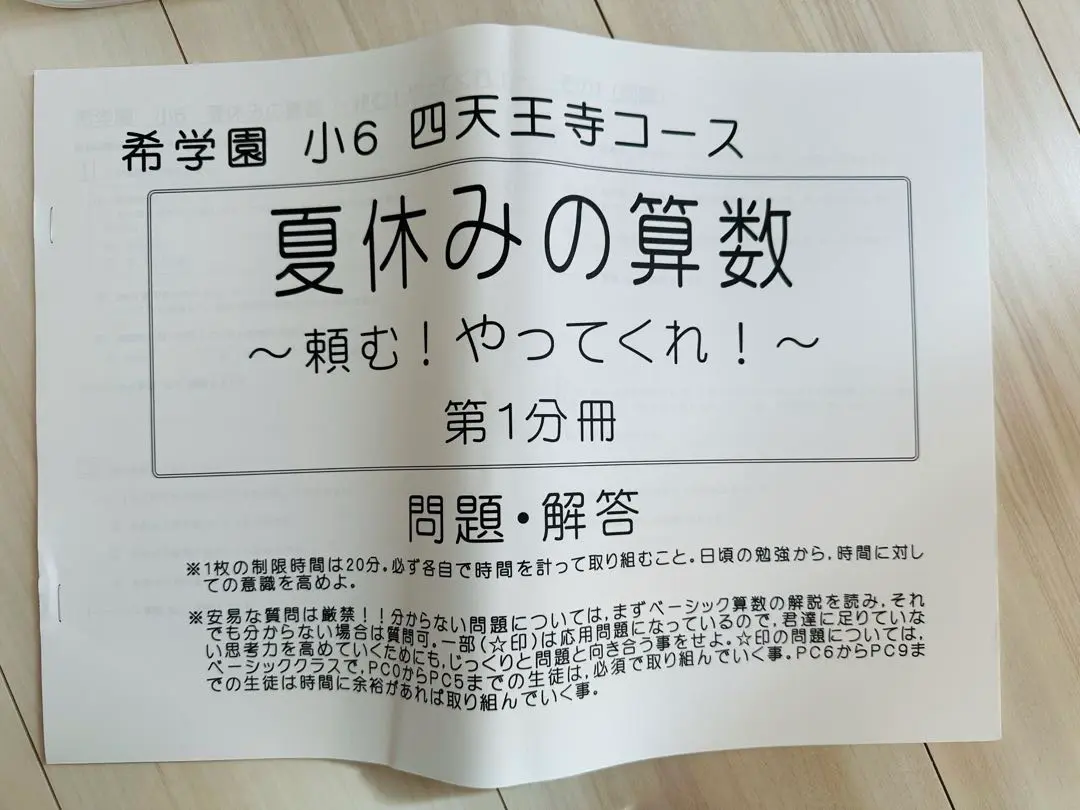 希学園 小6 四天王寺コース
夏休みの算数
～頼む！やってくれ！～
第1分冊
問題・解答
※1枚の制限時間は20分。必ず各自で時間を計って取り組むこと。日頃の勉強から、時間に対し
ての意識を高めよ。
※安易な質問は厳禁！！分からない問題については、まずベーシック算数の解説を読み、それ
でも分からない場合は質問可。一部(☆印)は応用問題になっているので、君達に足りていな
い思考力を高めていくためにも、じっくりと問題と向き合う事をせよ。☆印の問題については、
ベーシッククラスで、PC0からPC5までの生徒は、必須で取り組んでいく事。PC6からPC9ま
での生徒は時間に余裕があれば取り組んでいく事。